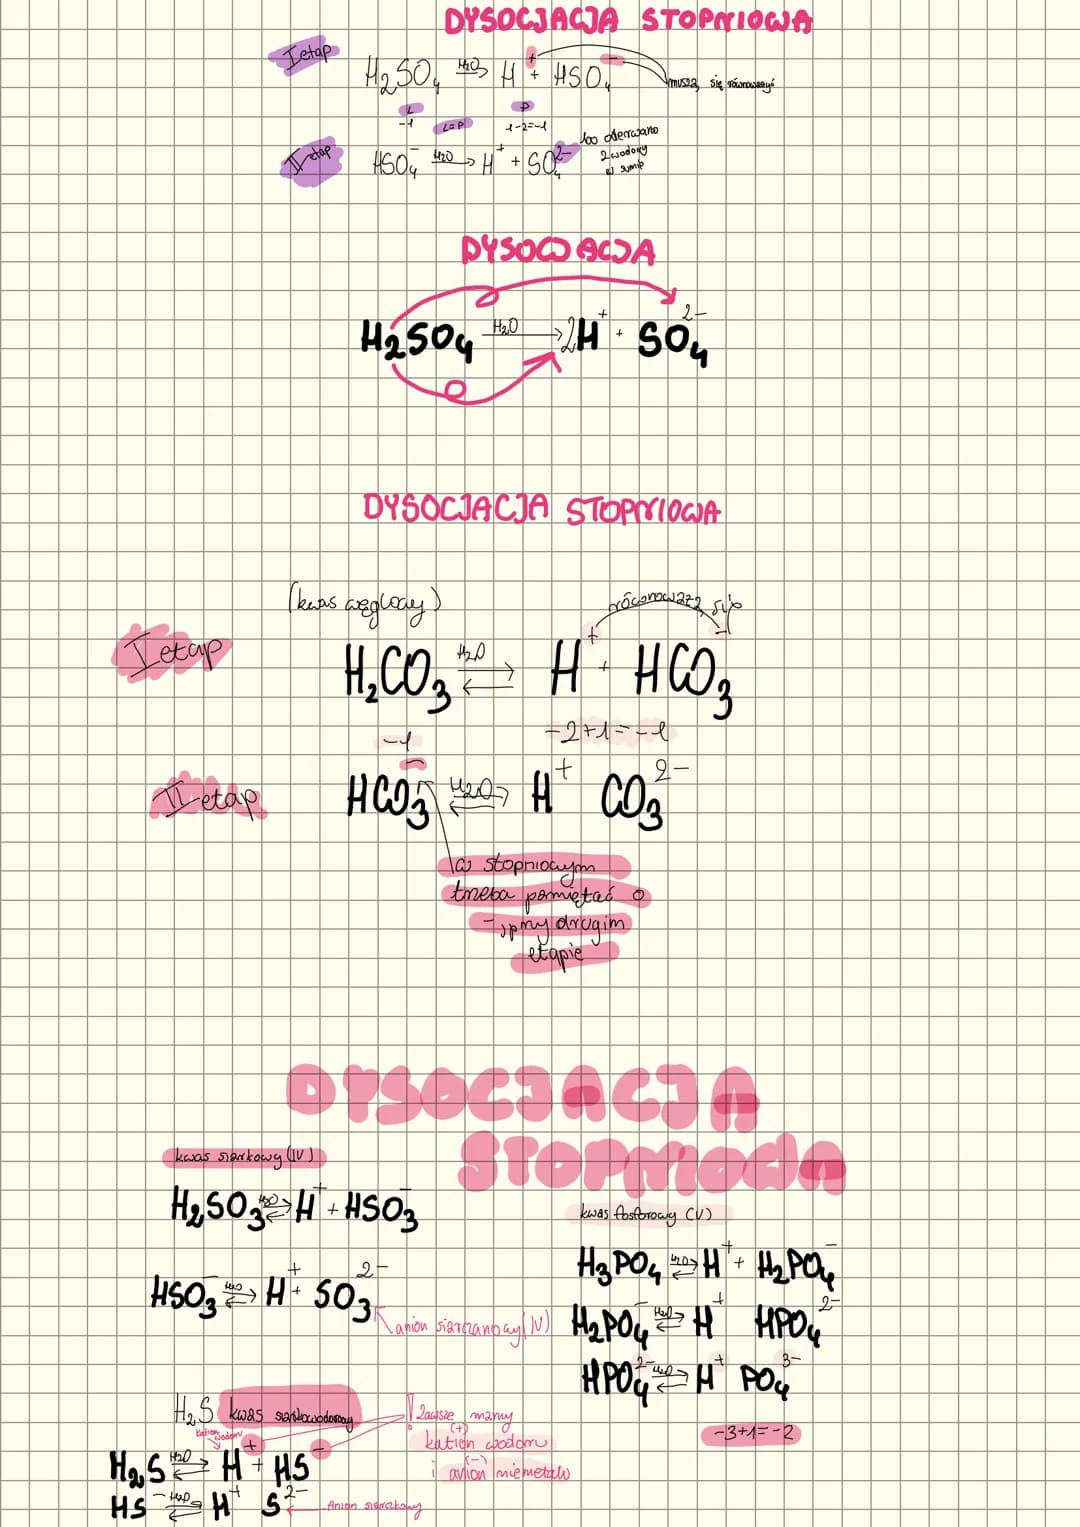 DYSOCJACJA STOPNIOWA
I etap
H₂SO₄ H₂O→ H⁺ + HSO₄⁻ muszą się równoważyć
L P
-1 L=P 1-2=-1
II etap
HSO₄⁻ H₂O→ H⁺ + SO₄²⁻ bo oderwano
2 wodory
w sumie
DYSOCJACJA
H₂SO₄ H₂O→ 2H⁺ + SO₄²⁻
DYSOCJACJA STOPNIOWA
(kwas węglowy) równoważą się
I etap
H₂CO₃ H₂O⇄ H⁺ + HCO₃⁻
-1 -2+1=-1
II etap
HCO₃⁻ H₂O⇄ H⁺ CO₃²⁻
W stopniowym
trzeba pamiętać o
- przy drugim
etapie
DYSOCJACJA
STOPNIOWA
kwas siarkowy (IV)
H₂SO₃ H₂O⇄ H⁺ + HSO₃⁻
HSO₃⁻ H₂O⇄ H⁺ + SO₃²⁻
anion siarczanowy (IV)
kwas fosforowy (V)
H₃PO₄ H₂O⇄ H⁺ + H₂PO₄⁻
H₂PO₄⁻ H₂O⇄ H⁺ HPO₄²⁻
HPO₄²⁻ H₂O⇄ H⁺ PO₄³⁻
-3+1=-2
H₂S kwas siarkowodorowy
kation wodoru
H₂S H₂O⇄ H⁺ + HS⁻
HS⁻ H₂O⇄ H⁺ S²⁻
Anion siarczkowy
! Zawsze mamy
(+)
kation wodoru
(-)
i anion niemetalu